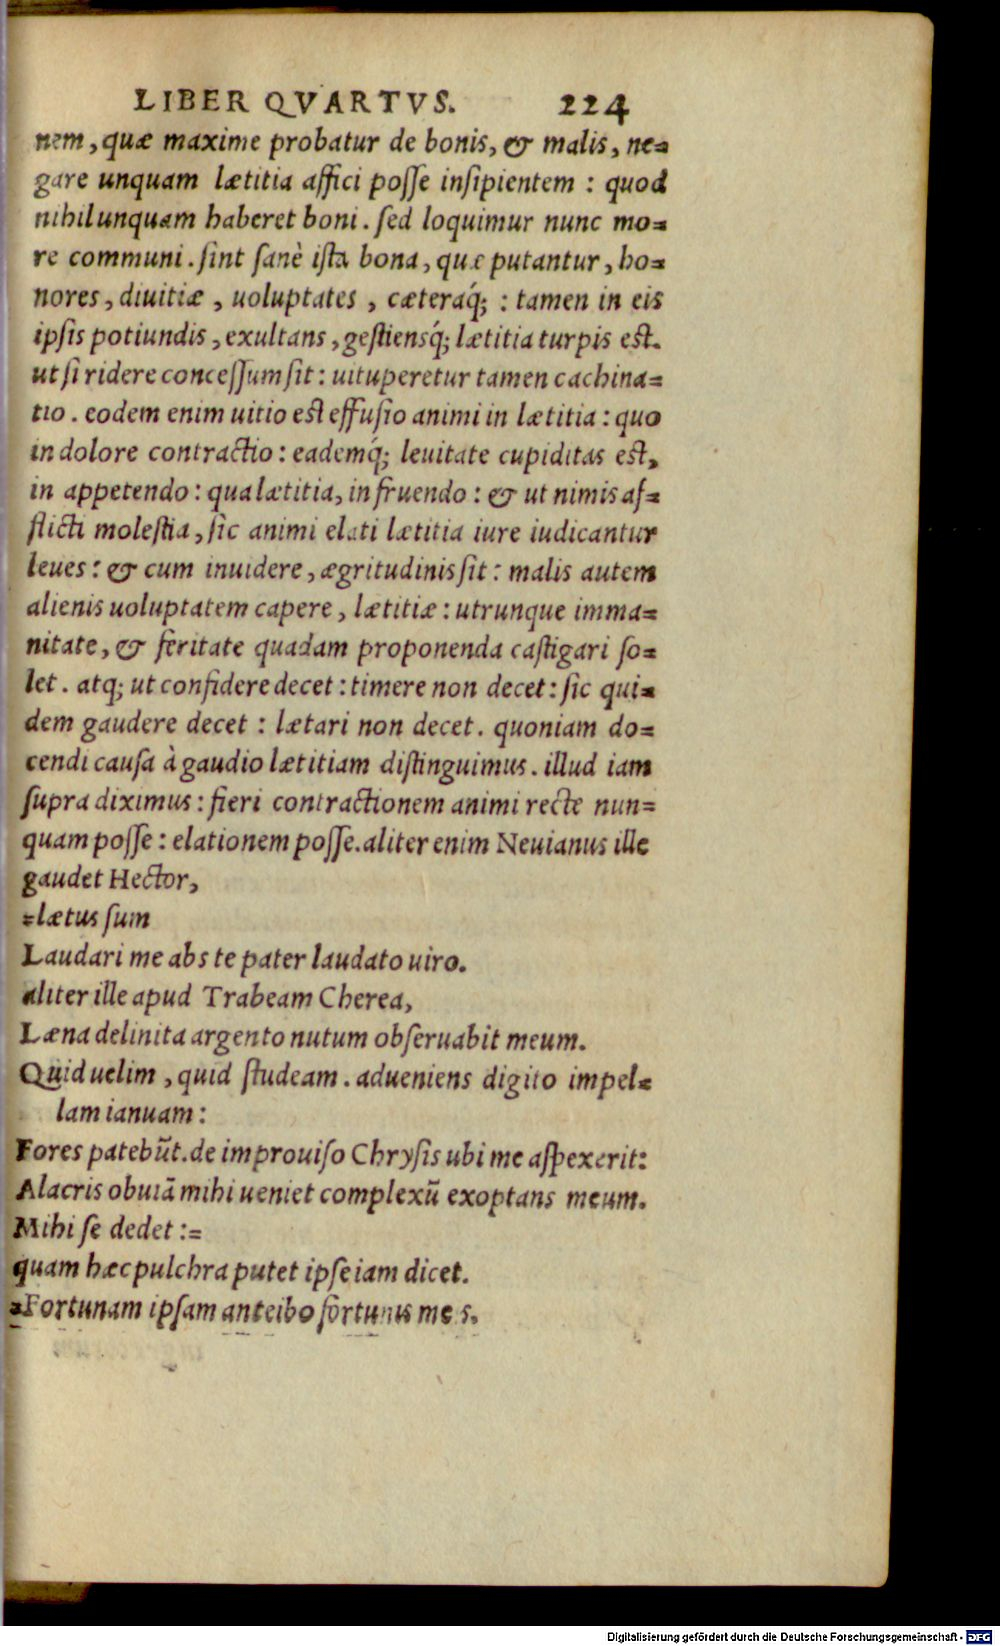 LIBER QVARTVS. 224
nem, quæ maxime probatur de bonis, & malis, ne=
gare unquam lætitia affici posse insipientem : quod
nihil unquam haberet boni. sed loquimur nunc mo=
re communi. sint sanè ista bona, quæ putantur, ho=
nores, diuitiæ, uoluptates, cæteraq́; : tamen in eis
ipsis potiundis, exultans, gestiensq́; lætitia turpis est.
ut si ridere concessum sit : uituperetur tamen cachina=
tio. eodem enim uitio est effusio animi in lætitia : quo
in dolore contractio : eademq́; leuitate cupiditas est,
in appetendo : qua lætitia, in fruendo : & ut nimis af=
flicti molestia, sic animi elati lætitia iure iudicantur
leues : & cum inuidere, ægritudinis sit : malis autem
alienis uoluptatem capere, lætitiæ : utrunque imma=
nitate, & feritate quadam proponenda castigari so=
let. atq; ut confidere decet : timere non decet : sic qui=
dem gaudere decet : lætari non decet. quoniam do=
cendi causa à gaudio lætitiam distinguimus. illud iam
supra diximus : fieri contractionem animi recte nun=
quam posse : elationem posse. aliter enim Neuianus ille
gaudet Hector,
=lætus sum
Laudari me abs te pater laudato uiro.
aliter ille apud Trabeam Cherea,
Læna delinita argento nutum obseruabit meum.
Quid uelim, quid studeam. adueniens digito impel=
lam ianuam :
Fores patebūt. de improuiso Chrysis ubi me aspexerit:
Alacris obuiā mihi ueniet complexū exoptans meum.
Mihi se dedet :=
quam hæc pulchra putet ipse iam dicet.
=Fortunam ipsam anteibo fortunis me s.
Digitalisierung gefördert durch die Deutsche Forschungsgemeinschaft - DFG